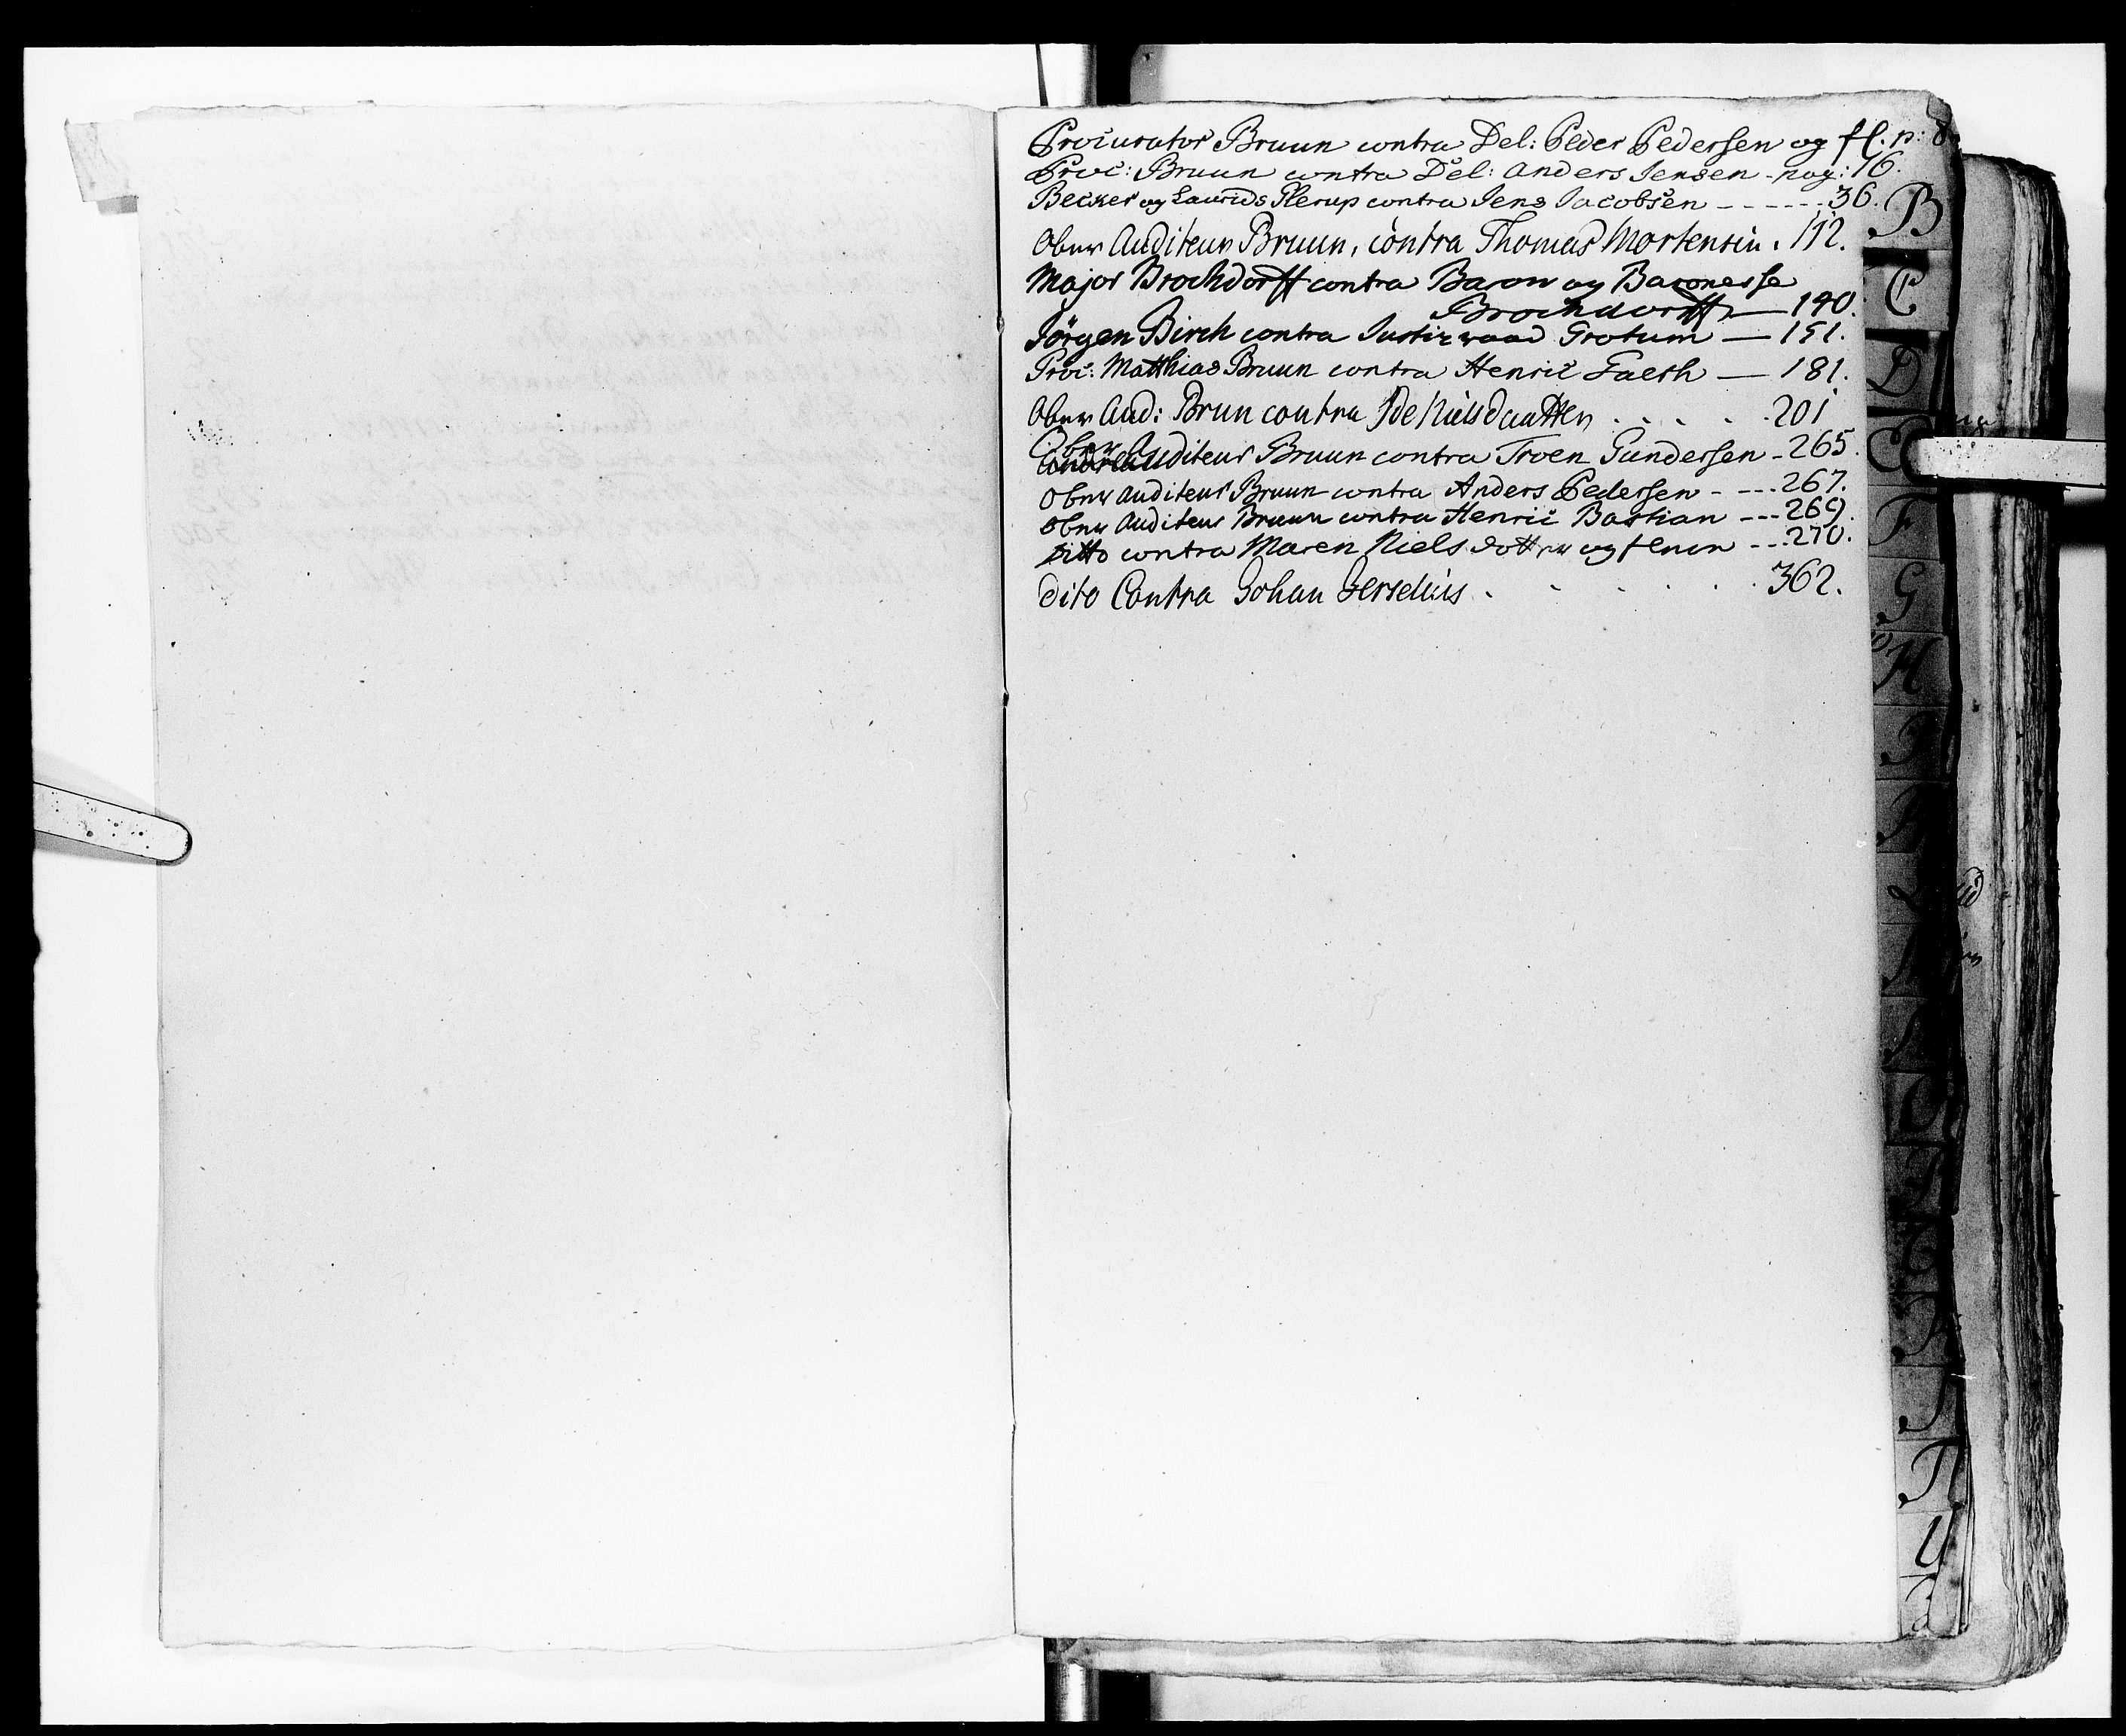 Procurator Bruun contra Del: Peder Pedersen og fl. p: 8
Proc: Bruun contra Del: Anders Jensen - pag: 16.
Becker og Laurids Plerup contra Jens Jacobsen - - - - - - 36.
Ober Auditeur Bruun, contra Thomas Mortensen . 112.
Major Brochdorff contra Baron og Baronesse
Brochdorff — 140.
Jörgen Birch contra Justizraad Grotum — 151.
Proc: Matthias Bruun contra Henric Faesh — 181.
Ober Aud: Brun contra Ide Nielsdaatter . . . . . 201
Ober Auditeur Bruun contra Troen Gundersen - 265.
Ober Auditeur Bruun contra Anders Pedersen - - - - 267.
Ober Auditeur Bruun contra Henric Bastian - - - 269.
Ditto contra Maren Niels dotter og fleer - - - 270.
Dito Contra Johan Gerselius . . . . . . 362.
B
C
D
E
F
G
H
U